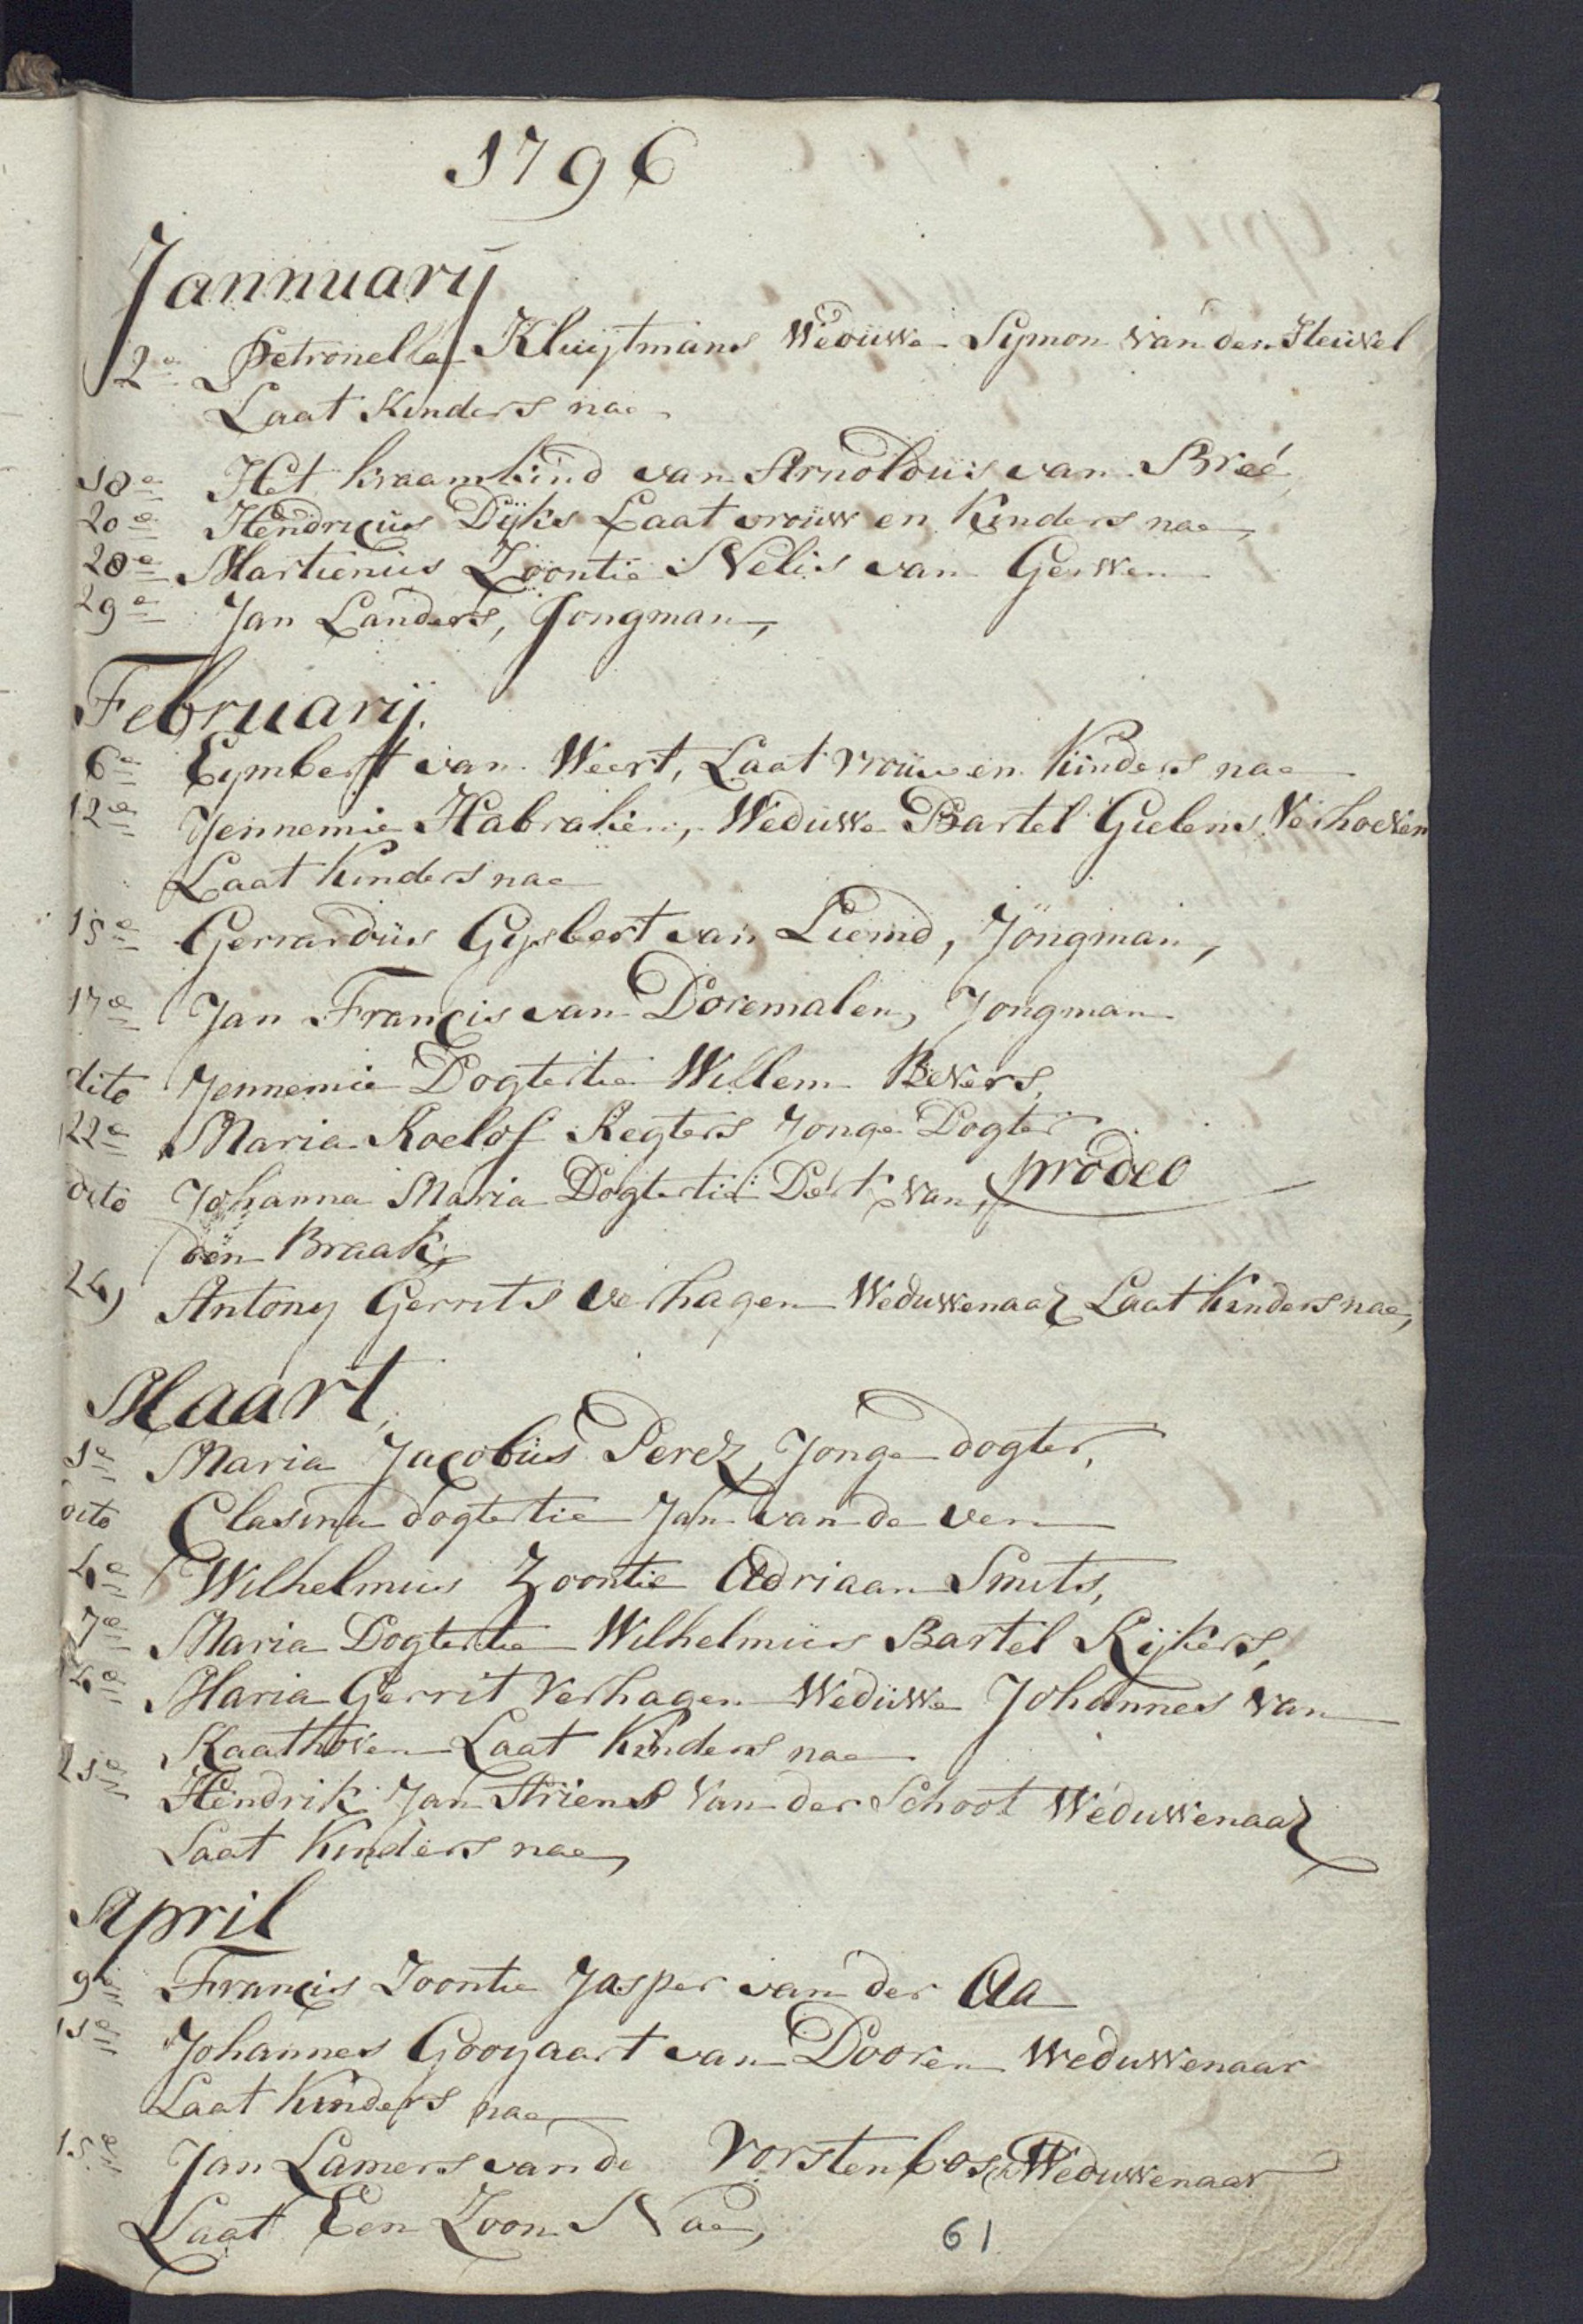 1796
Jannuarij
2e Petronella Kluijtmans Weduwe Symon van den Heuvel
Laat Kinders nae
18e Het kraamkind van Arnoldus van Breé,
20e Hendricus Dijks Laat vrouw en Kinders nae,
28e Martienus Zoontie Nelis van Gerwen
29e Jan Landers, Jongman,
Februarij.
6e Eymbert van Weert, Laat vrouw en Kinders nae
12e Jennemie Habraken, Weduwe Bartel Gielens Verhoeven
Laat Kinders nae
15e Gerrardus Gysbert van Liemd, Jongman,
17e Jan Francis van Doremalen, Jongman
dito Jennemie Dogtertie Willem Bevers,
22e Maria Roelof Regters Jonge Dogter
dito Johanna Maria Dogtertie Dirk van, prodeo
den Braak,
24) Antony Gerrits Verhagen Weduwenaar Laat Kinders nae,
Maart,
1e Maria Jacobus Perez, Jonge dogter,
dito Clasina dogtertie Jan van de Ven
4e Wilhelmus Zoontie Adriaan Smits,
7e Maria Dogtertie Wilhelmus Bartel Rijkers,
Maria Gerrit Verhagen Weduwe Johannes van
Kaathoven Laat Kinders nae
Hendrik Jan Ariens van der Schoot Weduwenaar
Laat Kinders nae,
April
9e Francis Zoontie Jasper van der Aa
Johannes Gooyaart van Dooren Weduwenaar
Laat Kinders nae
15e Jan Lamers van de Vorstenbos Weduwenaar
Laat Een Zoon Nae,
61